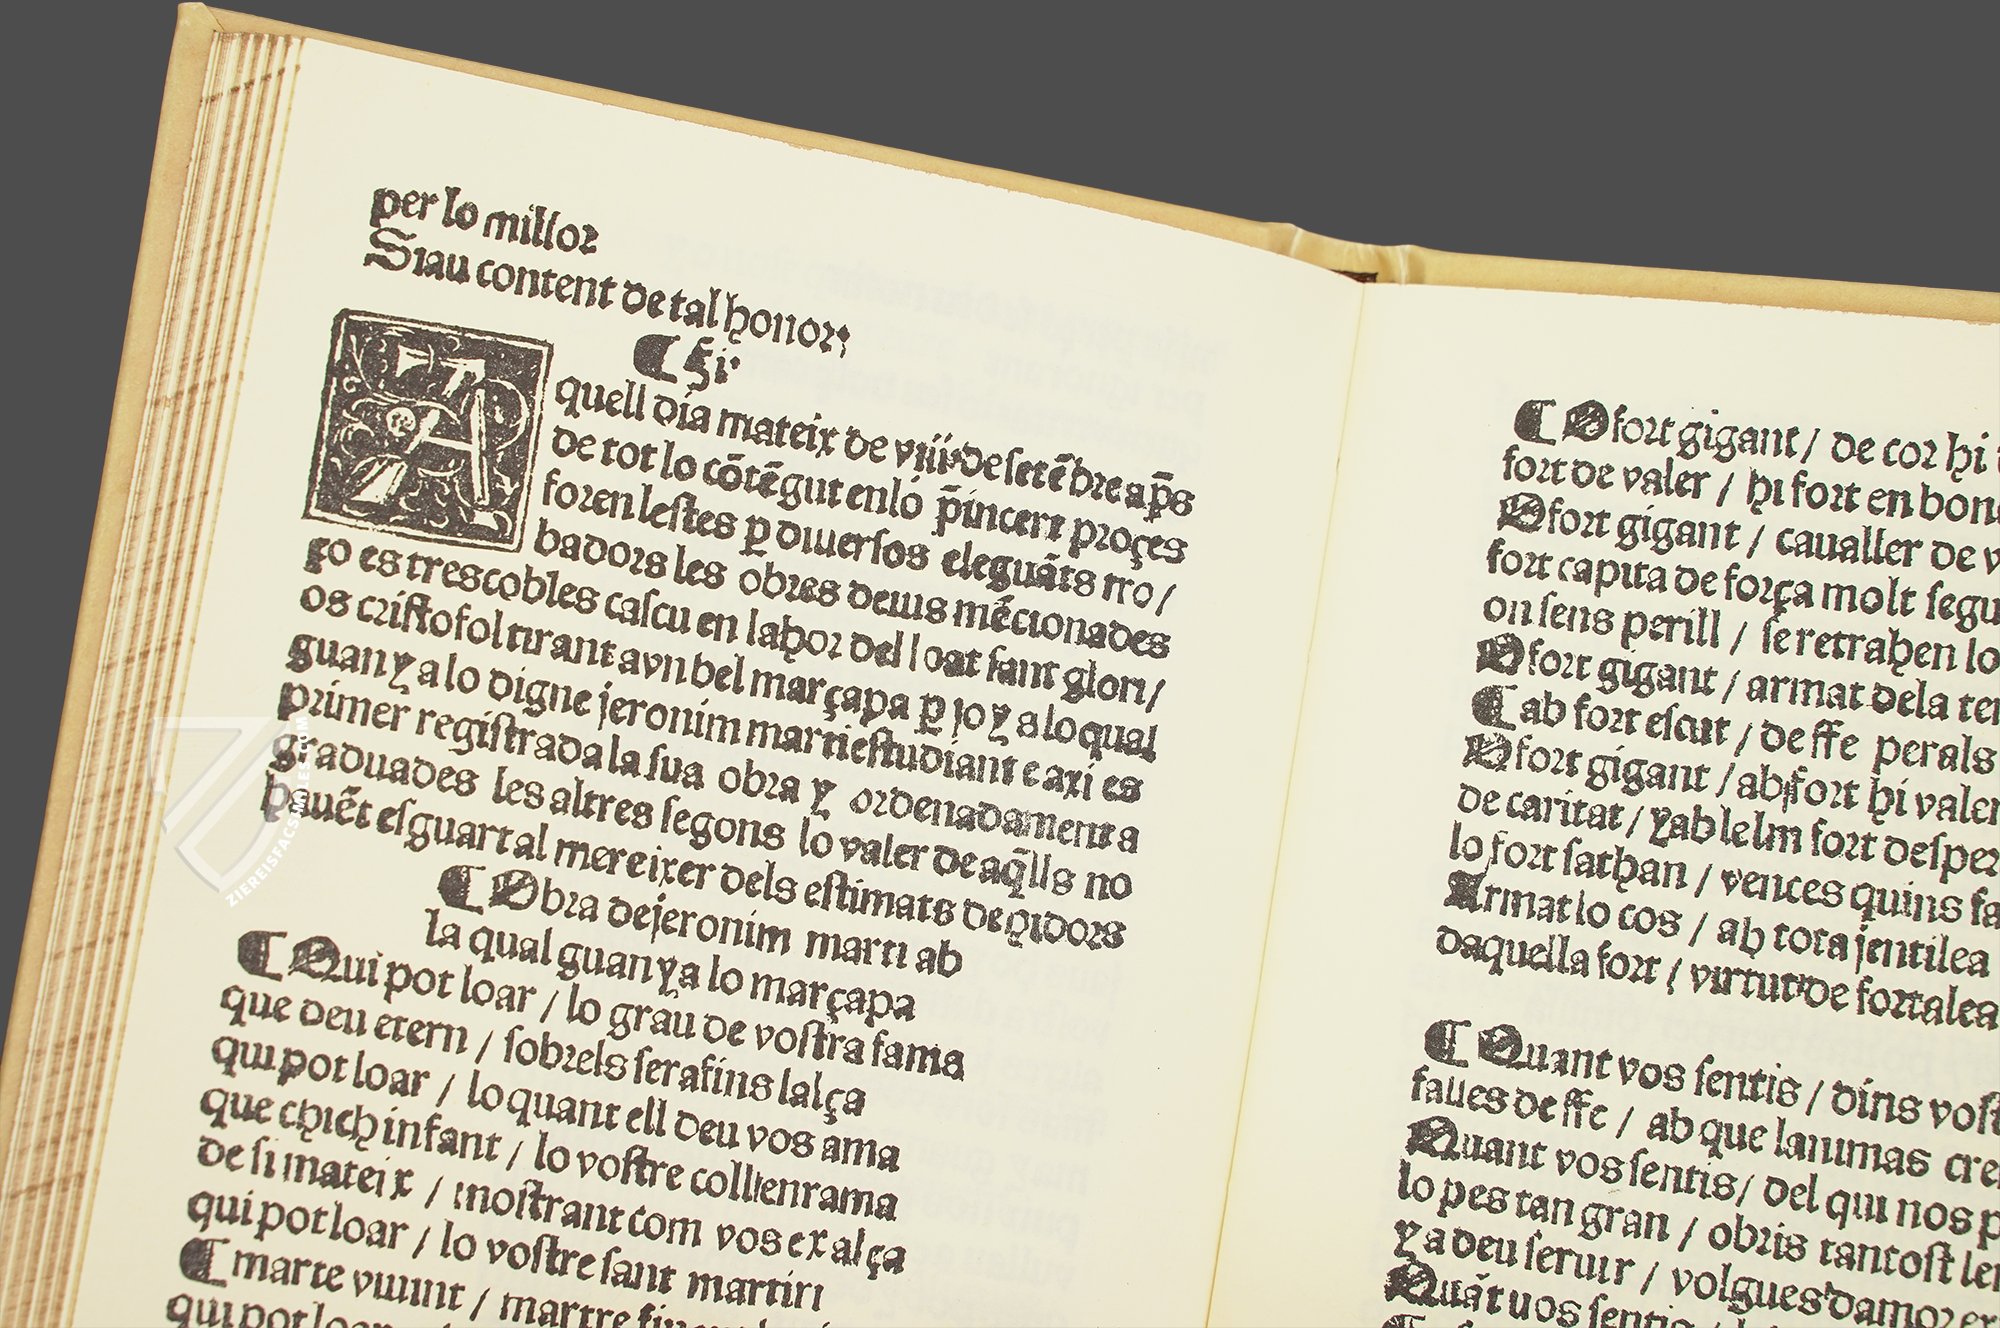 per lo millor
Siau content de tal honor;
¶ fir
Aquell dia mateix de vıiiȷ· de setẽbre a p̃s
de tot lo cõtẽgut en lo p̃incent proçes
foren lestes ꝑ diuersos eleguãts tro/
badors les obres demũs mẽcionades
go es tres cobles cascu en lahor del loat sant glori/
os cristofol tirant a vn bel marçapa ꝑ joya lo qual
guanya lo digne jeronim marti estudiant e axi es
primer registrada la sua obra y ordenadament a
graduades les altres segons lo valer de aq̃lls no
hauẽt esguart al mereixer dels estimats de hidors
¶ Obra de jeronim marti ab
la qual guanya lo marçapa
¶ Qui pot loar / lo grau de vostra fama
que deu etern / sobrels serafins lalça
qui pot loar / lo quant ell deu vos ama
que chich infant / lo vostre coll enrama
de si mateix / mostrant com vos exalça
qui pot loar / lo vostre sant martiri
¶ marte viuint / martre
qui pot loar
¶ O fort gigant / de cor hi
fort de valer / hi fort en bon
O fort gigant / caualler de v
fort capita de força molt segu
on sens perill / se retrahen lo
O fort gigant / armat dela
¶ ab fort escut / de ffe perals
O fort gigant / ab fort hi valer
de caritat / y ab lelm fort desper
lo fort sathan / vences quins fa
Armat lo cos / ab tota jentilea
daquella fort / virtut de fortalea
¶ Quant vos sentis / dins vost
falles de ffe / ab que lanimas cre
Quant vos sentis / del qui nos p
lo pes tan gran / obris tantost
y a deu seruir / volgues damor
Quãt uos sentis
ZIEREISFACSIMILES.COM